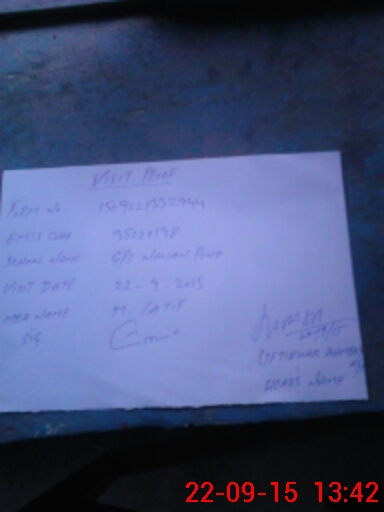 VISIT PROOF
FORM No 1509021332944
EMIS CODE 35020198
SCHOOL NAME GPS
VISIT DATE 22-9-2015
MEA NAME M. LATIF
SIG
22/9/15
(IFTIKHAR AHMED)
HEAD'S NAME
22-09-15 13:42